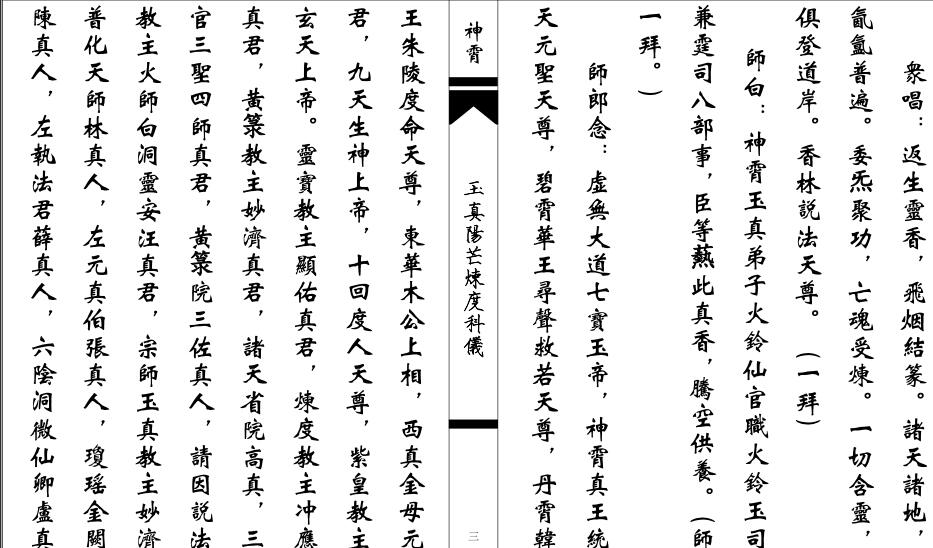 衆唱：返生靈香，飛烟結篆。諸天諸地，
氤氳普遍。委炁聚功，亡魂受煉。一切含靈，
俱登道岸。香林説法天尊。（一拜）
師白：神霄玉真弟子火鈴仙官職火鈴玉司
兼霆司八部事，臣等爇此真香，騰空供養。（師
一拜。）
師郎念：虛無大道七寶玉帝，神霄真王統
天元聖天尊，碧霄華王尋聲救若天尊，丹霄韓
神霄
玉真陽芒煉度科儀
三
王朱陵度命天尊，東華木公上相，西真金母元
君，九天生神上帝，十回度人天尊，紫皇教主
玄天上帝。靈寶教主顯佑真君，煉度教主冲應
真君，黃籙教主妙濟真君，諸天省院高真，三
官三聖四師真君，黃籙院三佐真人，請因説法
教主火師白洞靈安汪真君，宗師玉真教主妙濟
普化天師林真人，左元真伯張真人，瓊瑶金闕
陳真人，左執法君薛真人，六陰洞微仙卿盧真